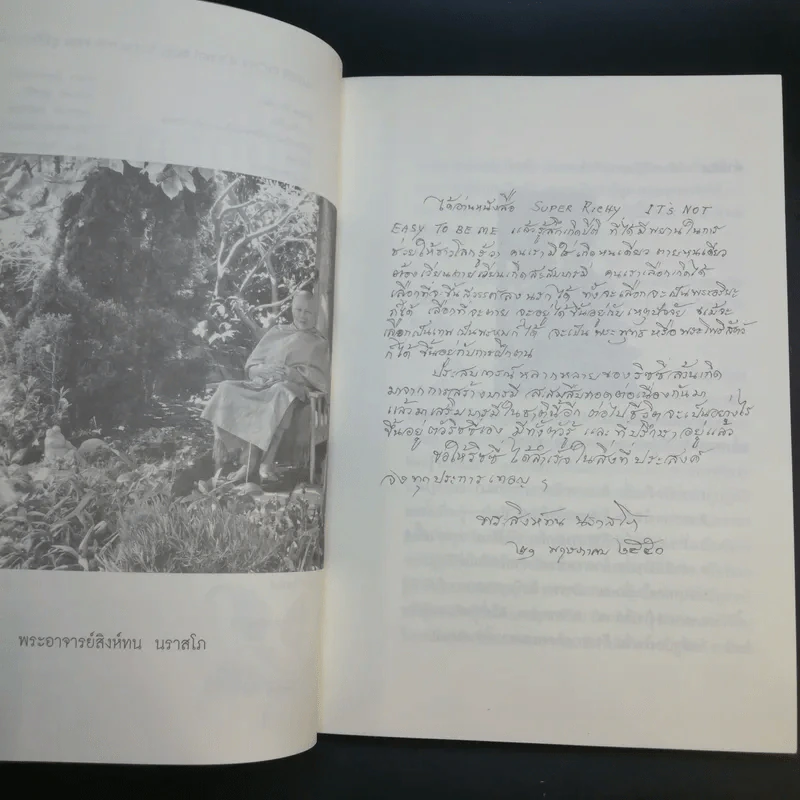 พระอาจารย์สิงห์ทน นราสโภ
ได้อ่านหนังสือ SUPER RICHY IT'S NOT
EASY TO BE ME แล้วรู้สึกเกิดปีติ ที่ได้มีพยานในการ
ช่วยให้ชาวโลกรู้ว่า คนเรามิใช่เกิดหนเดียว ตายหนเดียว
ต้องเวียนตายเวียนเกิดสะสมบารมี คนเราเลือกเกิดได้
เลือกที่จะขึ้นสวรรค์ลงนรกได้ ทั้งจะเลือกจะเป็นพระอริยะ
ก็ได้ เลือกที่จะตาย จะอยู่ได้ขึ้นอยู่กับเหตุปัจจัย แม้จะ
เลือกเป็นเทพ เป็นพระพรหมก็ได้ จะเป็นพระพุทธ หรือพระโพธิสัตว์
ก็ได้ ขึ้นอยู่กับการฝึกฝน
ประสบการณ์หลากหลายของริชชี่ล้วนเกิด
มาจากการสร้างบารมี สะสมสืบทอดต่อเนื่องกันมา
แล้วมาเสริมบารมีในชาตินี้อีก ต่อไปชีวิตจะเป็นอย่างไร
ขึ้นอยู่ตัวริชชี่เอง มีทั้งตัวรู้ และที่ปรึกษาอยู่แล้ว
ขอให้ริชชี่ ได้สำเร็จในสิ่งที่ประสงค์
จงทุกประการ เทอญ ฯ
พระสิงห์ทน นราสโภ
๒๑ พฤษภาคม ๒๕๕๐